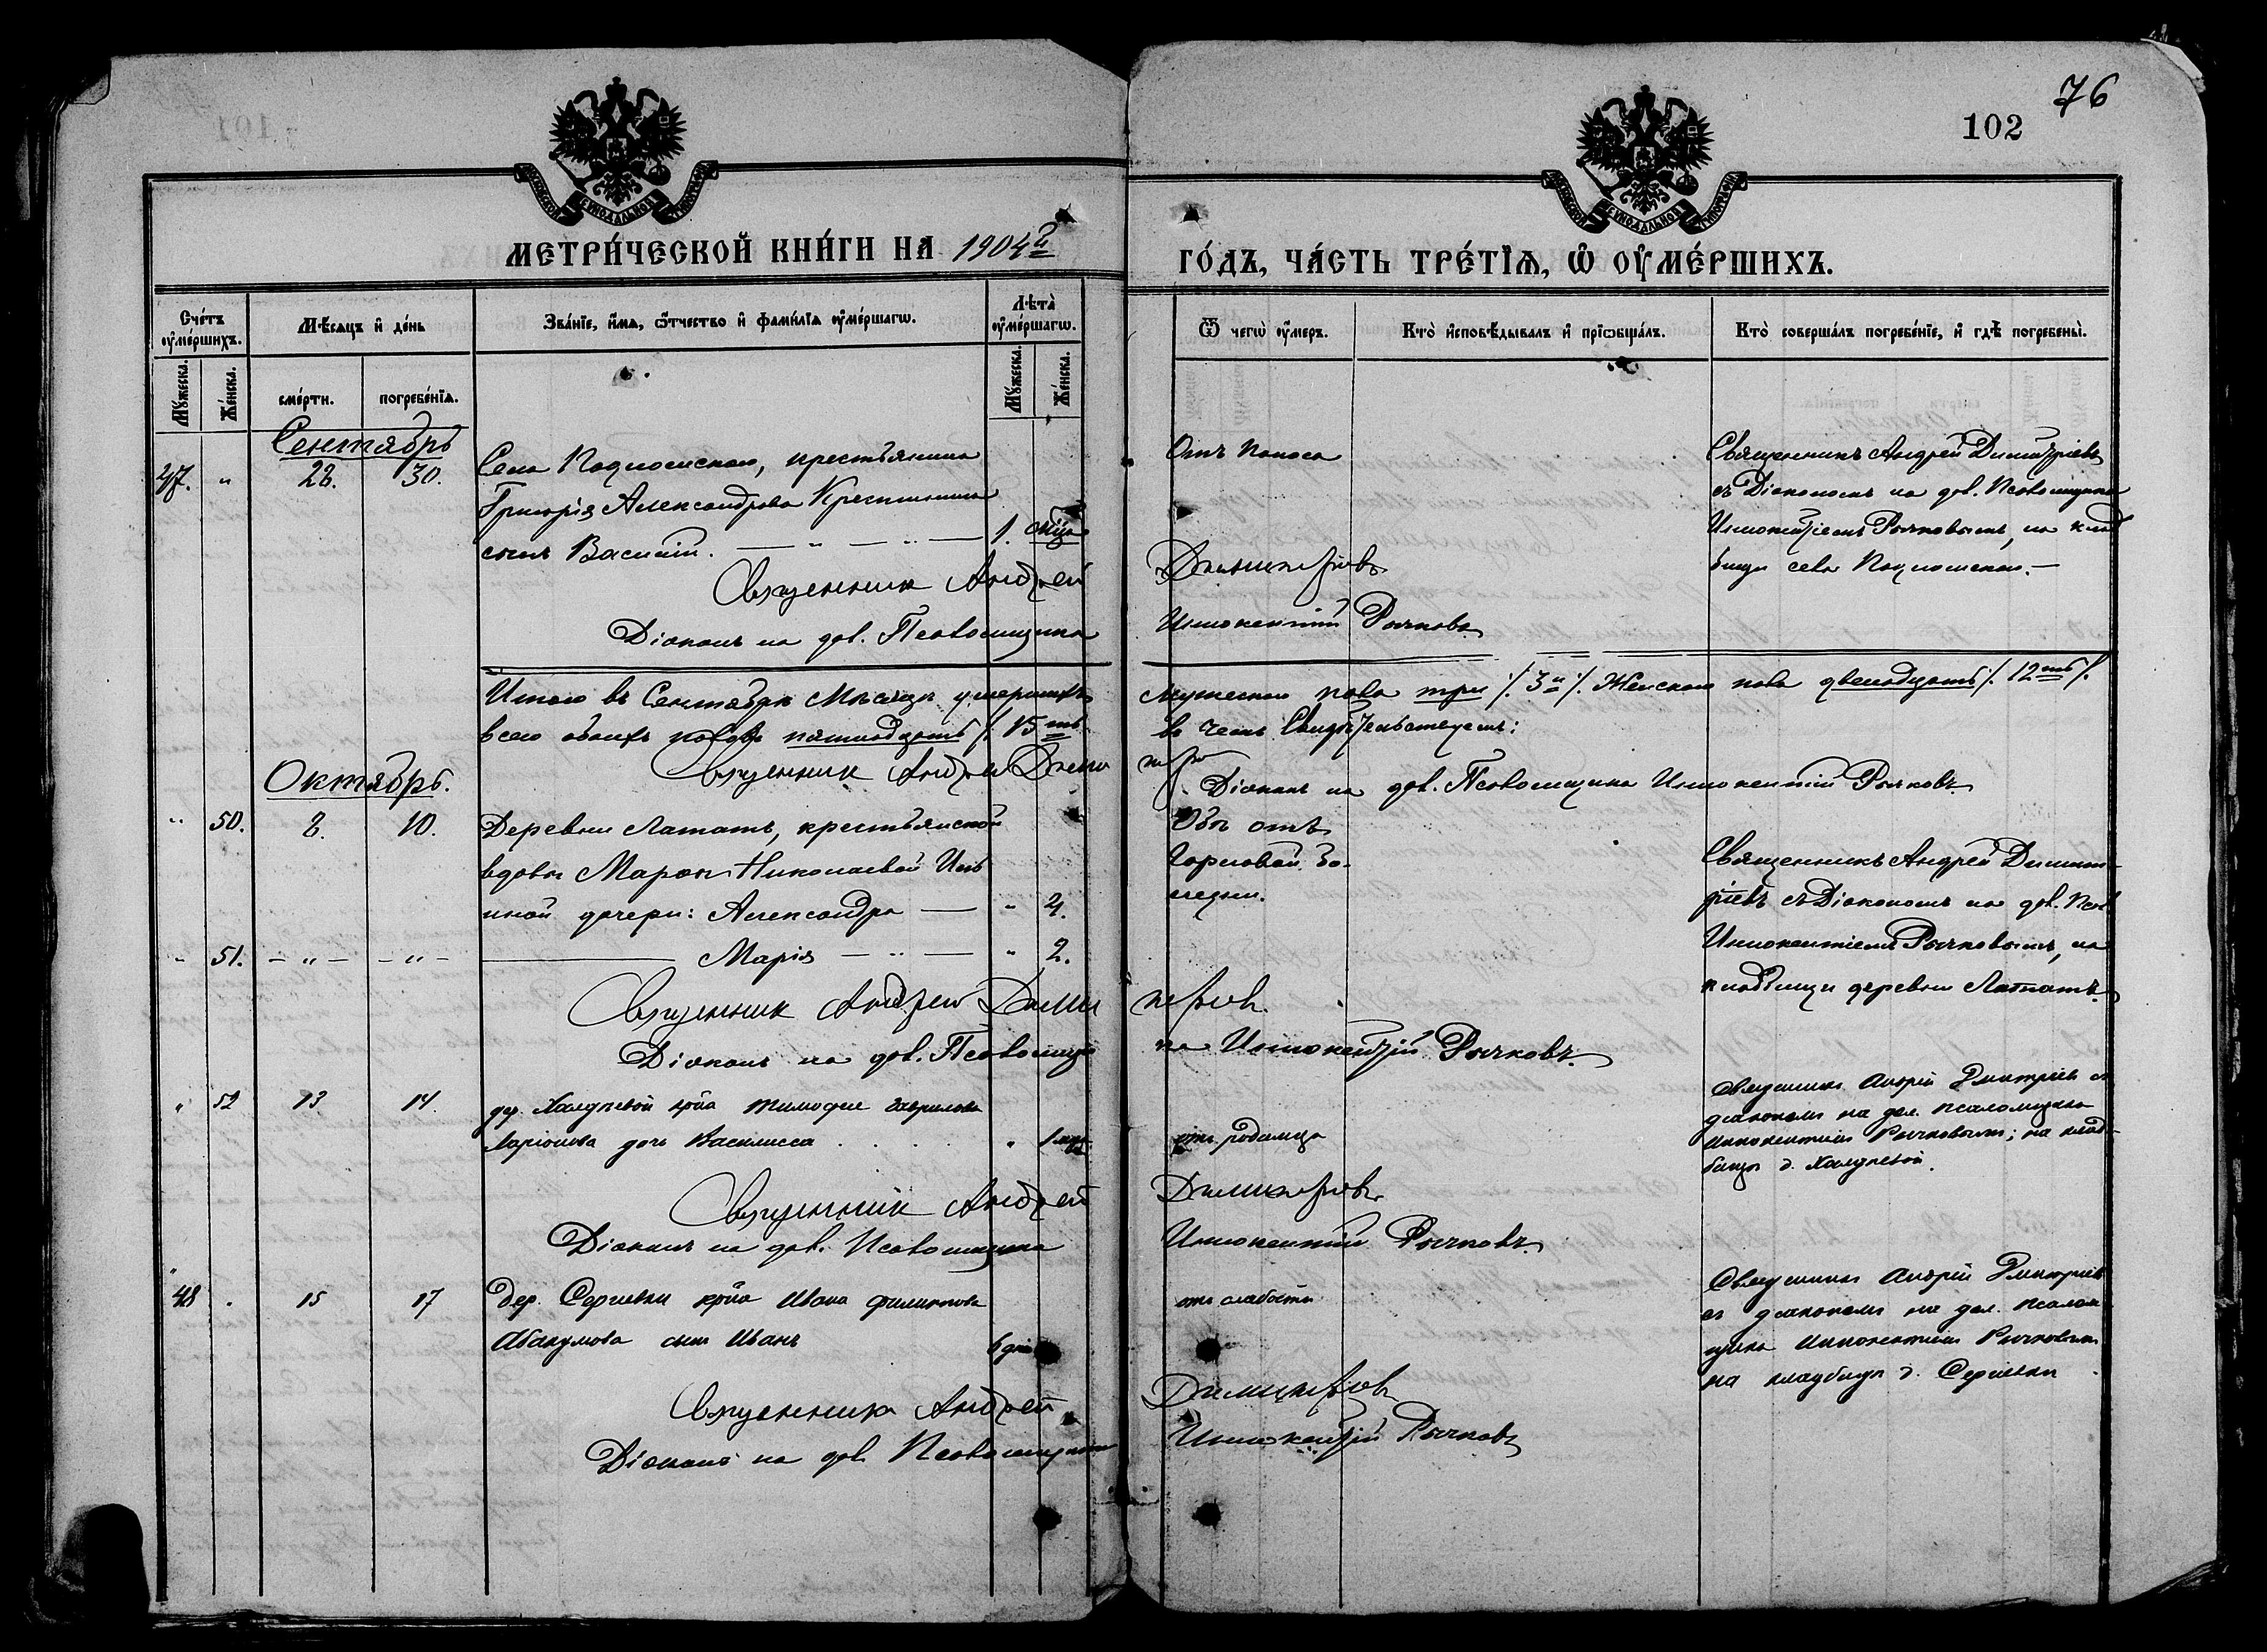 76
102
МЕТРИ́ЧЕСКОЙ КНИ́ГИ НА 1904й
ГО́ДЪ, ЧА́СТЬ ТРЕ́ТІѦ, Ѡ҆ ОУ҆МЕ́РШИХЪ.
Счéтъ оу҆мéршихъ.
Мѣ́сяцъ и҆ дéнь
Звáнїе, и҆́мѧ, ѻ҆́тчество и҆ фамѝлїѧ оу҆мéршагѡ.
Лѣ̑та оу҆мéршагѡ.
Ѿ чегѡ̀ оу҆́меръ.
Ктò и҆сповѣ́дывалъ и҆ прїѡбщáлъ.
Ктò совершáлъ погребéнїе, и҆ гдѣ̀ погребены̀.
Мꙋ́жеска.
Жéнска.
смéрти.
погребéнїѧ.
Мꙋ́жеска.
Жéнска.
Сентябрь
47. " 28. 30.
Села Подсосенскаго, крестьянина
Григорія Александрова
сынъ Василій. — " — " — 1. мѣс
Отъ поноса
Священникъ Андрей Димитріевъ
съ Діакономъ на дол. Псаломщика
Иннокентіемъ Рычковымъ, на клад
бищѣ села
Священникъ Андрей Димитріевъ
Діаконъ на дол. Псаломщика Иннокентій Рычковъ
Итого въ Сентябрѣ Мѣсяцѣ умершихъ мужескаго пола три /. 3и /. Женскаго пола двенадцать /. 12ть /.
всего обоихъ половъ пятнадцать /. 15ть въ чемъ Свидѣтельствуемъ:
Священникъ Андрей Димитріевъ
Діаконъ на дол. Псаломщика Иннокентій Рычковъ.
Октябрь.
" 50. 8. 10.
Деревни Лататъ, крестьянской
вдовы Марѳы Николаевой Иль
иной дочери: Александра — " 4.
Обѣ отъ
Горловой бо-
лезни.
" 51. — " — — " —
Марія — " — " 2.
Священникъ Андрей Димит-
ріевъ съ Діакономъ на дол. Псал.
Иннокентіемъ Рычковымъ, на
кладбищи деревни Лататъ.
Священникъ Андрей Димитріевъ.
Діаконъ на дол. Псаломщика Иннокентій Рычковъ.
" 52 13 14.
дер. Халдѣевой кр҃на Тимофея Гаврилова
Ларіонова дочь Василисса . . . . " 1 мѣс
отъ родимца
Священникъ Андрей Дмитріевъ съ
діакономъ на дол. псаломщика
Иннокентіемъ Рычковымъ; на клад-
бищѣ д. Халдѣевой.
Священникъ Андрей Димитріевъ.
Діаконъ на дол. Псаломщика Иннокентій Рычковъ.
48 . 15 17
дер. Сергіевки кр҃на Ивана Филиппова
Абакумова сынъ Иванъ 6 дней
отъ слабости
Священникъ Андрей Дмитріевъ
съ діакономъ на дол. псалом
щика Иннокентіемъ Рычковымъ
на кладбищѣ д. Сергіевки
Священникъ Андрей Димитріевъ
Діаконъ на дол. Псаломщика Иннокентій Рычковъ